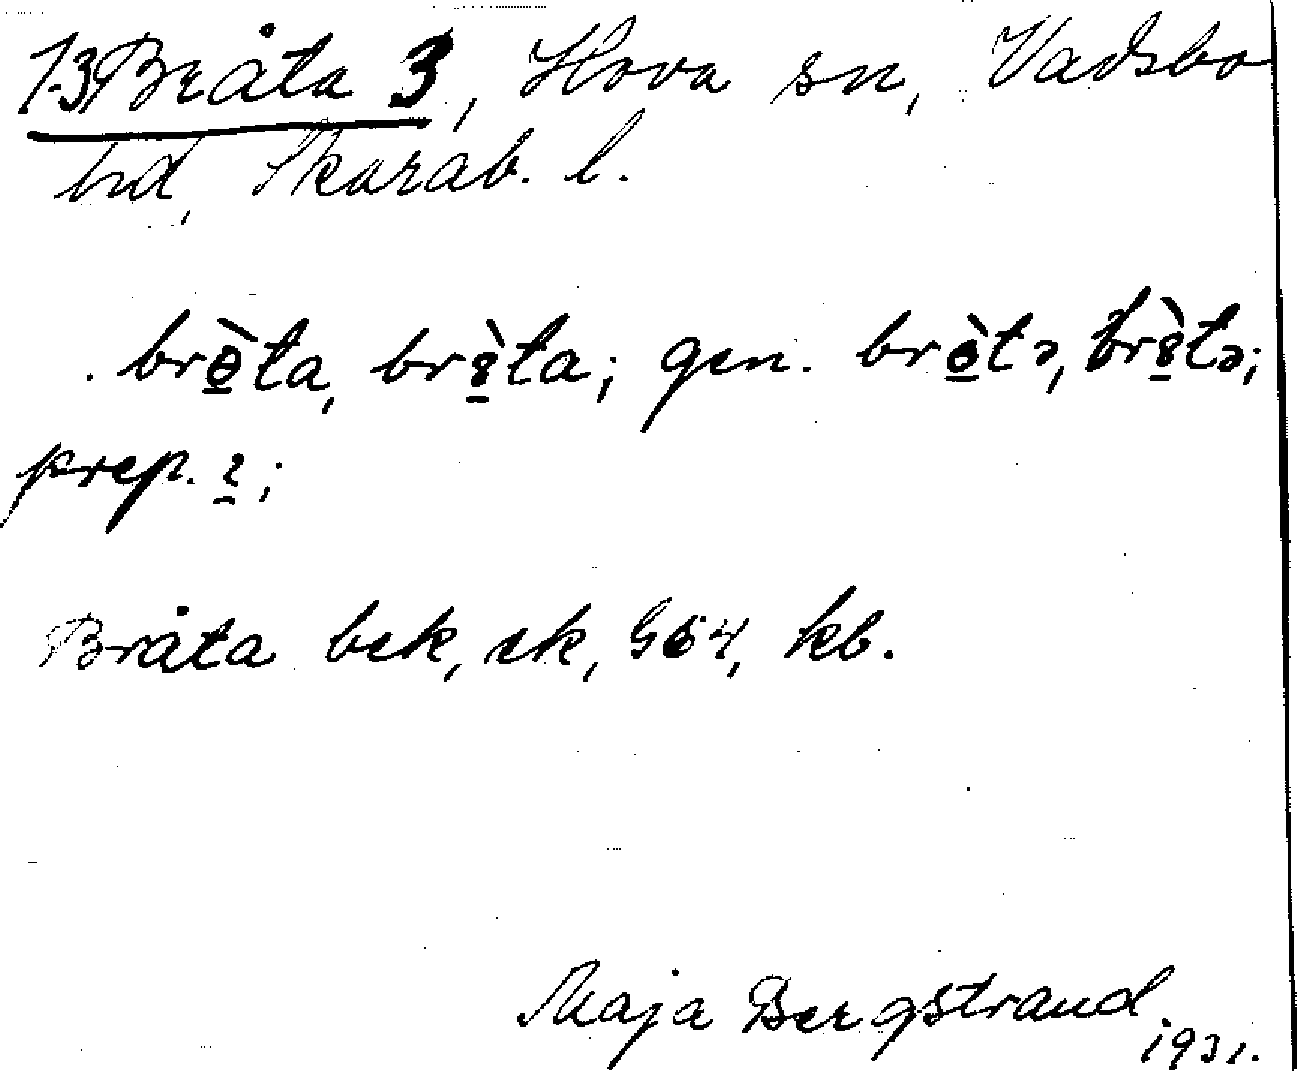 1-3 Bråta 3, Hova sn, Vadsbo
hd, Skarab. l.
brө̀ta, br8̀ta; gen. brө̀tə, br8̀tə;
prep. ɩ;
Bråta bek, ek, G54, kb.
Maja Bergstrand.
1931.